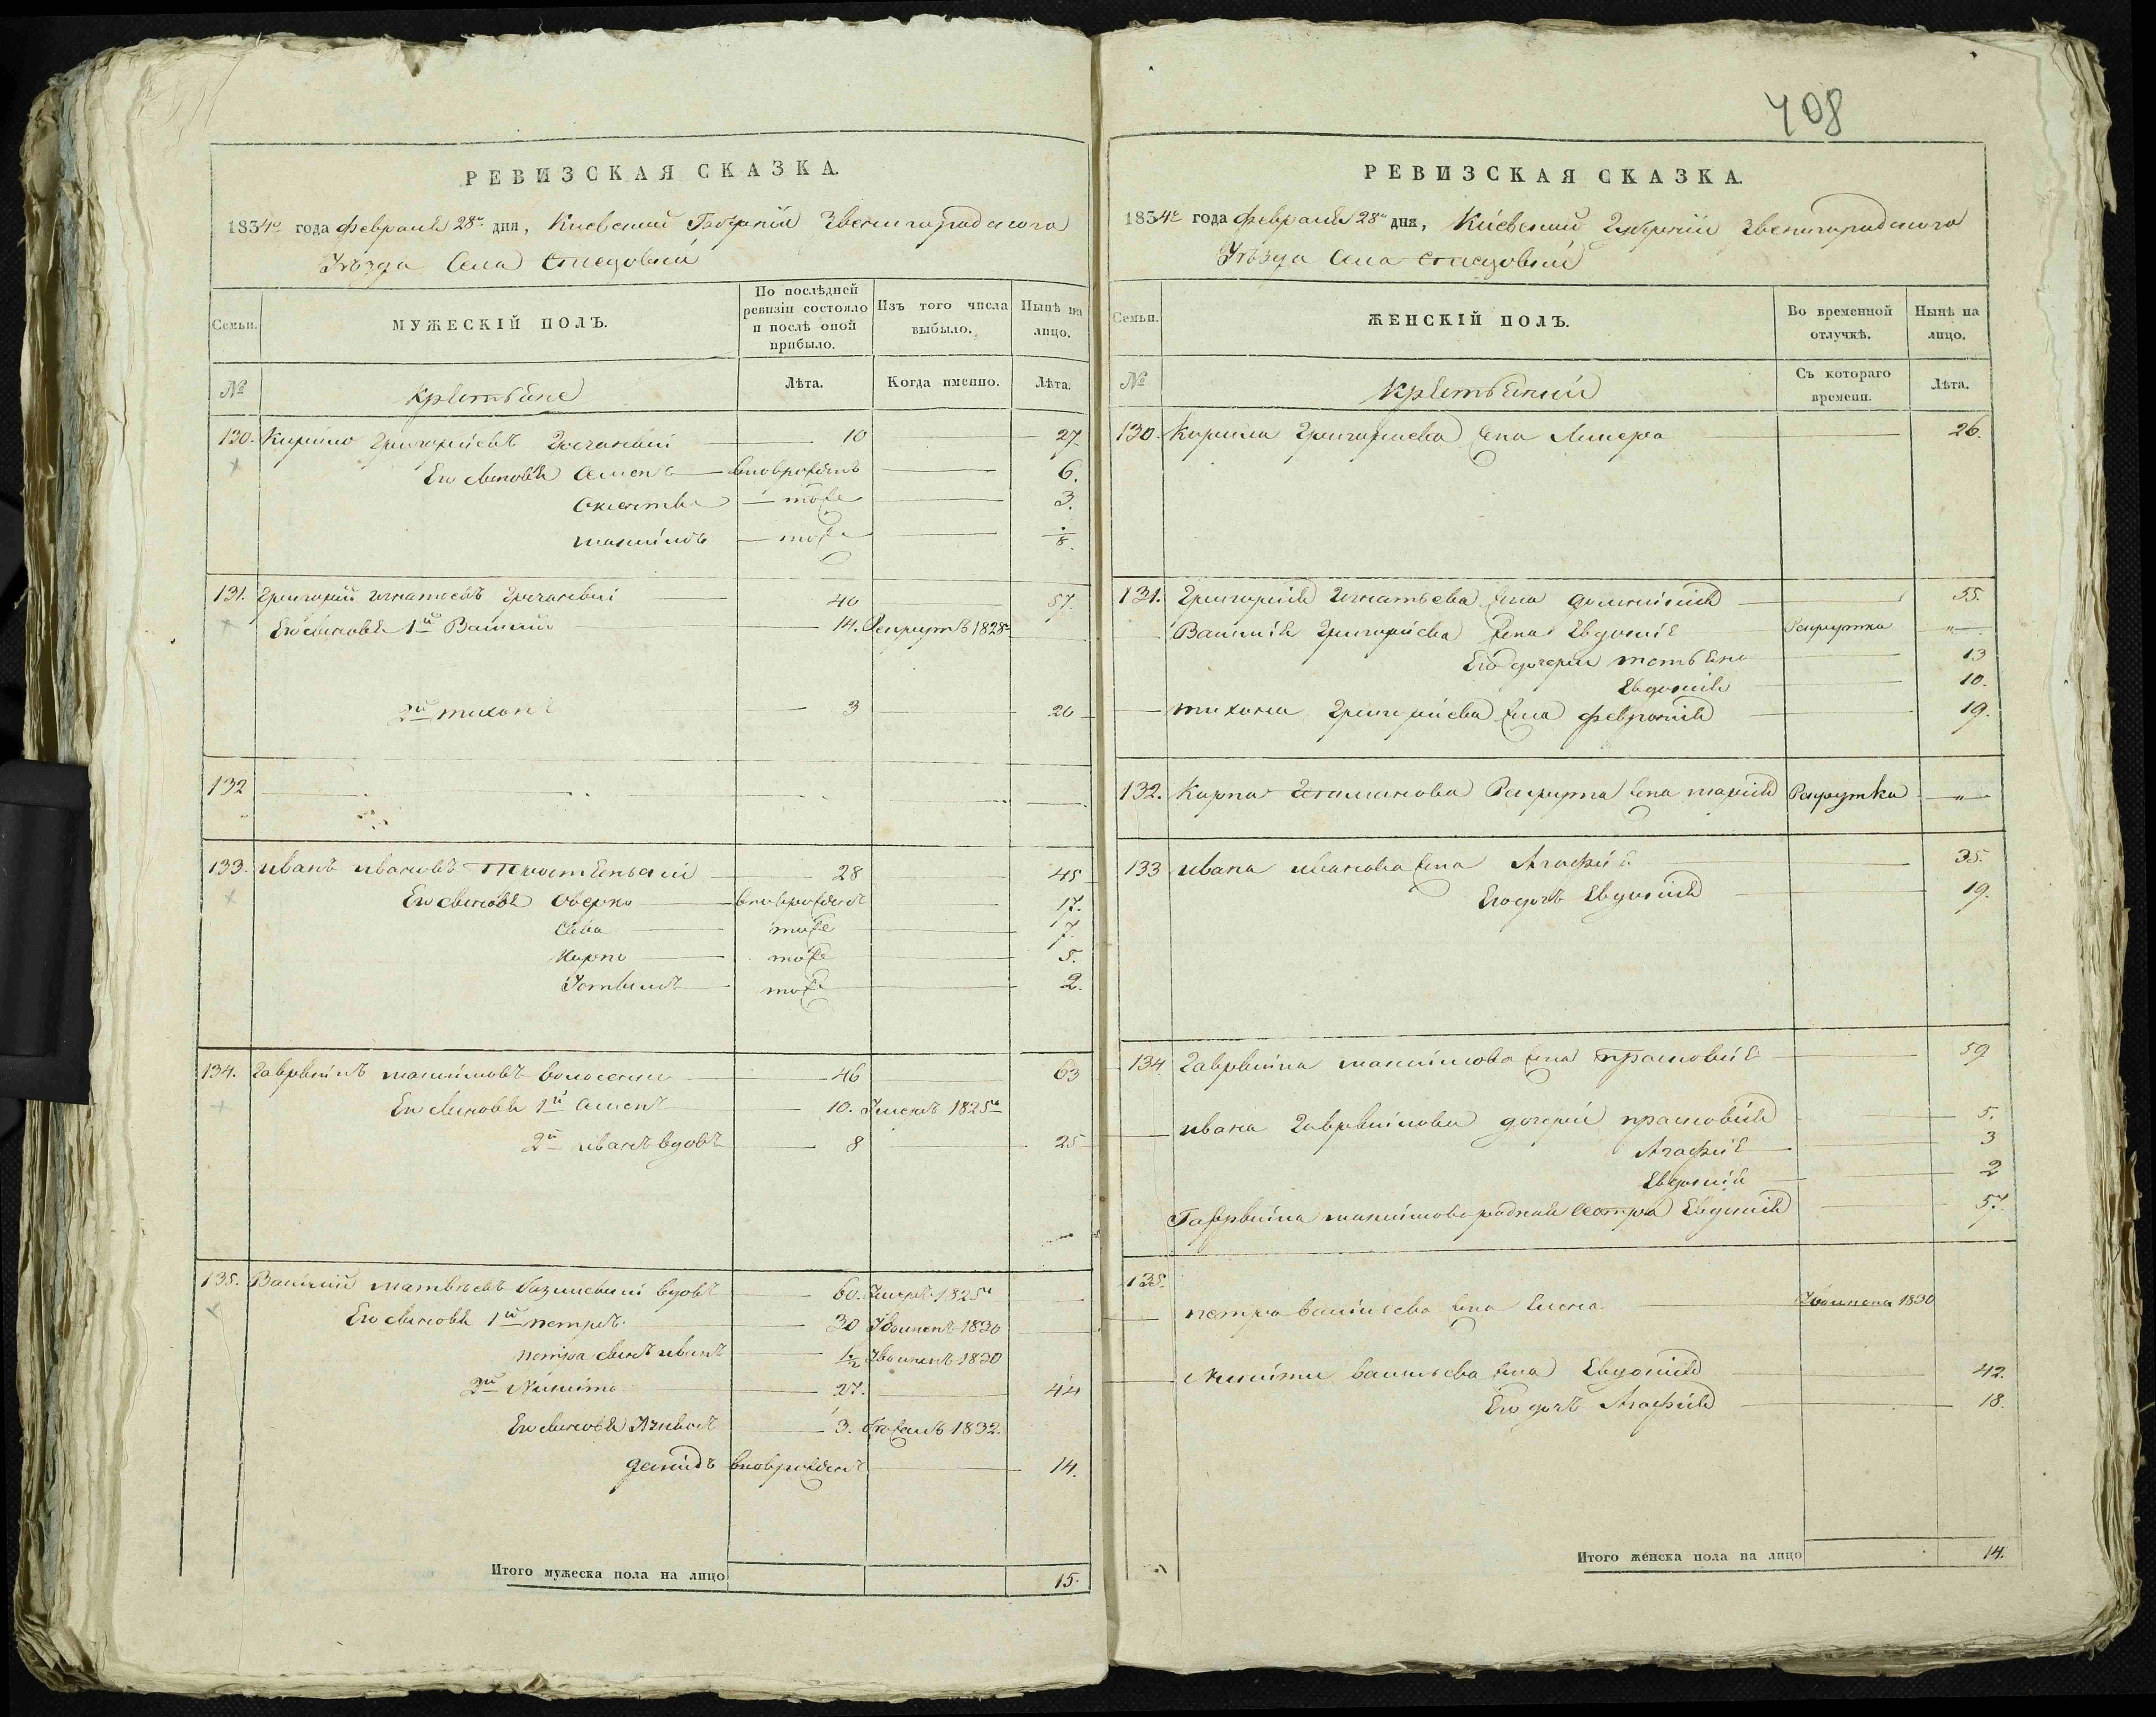 408
РЕВИЗСКАЯ СКАЗКА.
1834го года февраля 28го дня, Киевской Губернии Звенигородского
Уѣзда Села
Семьи.
МУЖЕСКІЙ ПОЛЪ.
По послѣдней ревизіи состояло и послѣ оной прибыло.
Изъ того числа выбыло.
Нынѣ на лицо.
№
Крестьяне
Лѣта.
Когда именно.
Лѣта.
130. Кирило Григорьевъ 10 27.
Его сыновья Семенъ вновьрожденъ 6.
тоже 3.
Максимъ тоже 8.
131. Григорий Игнатьевъ 40 57.
Его сыновья 1й Василий 14. Рекрутъ 1828го
2й Тихонъ 3 20
132
133. Иванъ Ивановъ 28 45
Его сыновья Оверко вновьрожденъ 17.
Сава тоже 7.
Карпо тоже 5.
тоже 2.
134. Гаврыилъ Максимовъ 46 63
Его сыновья 1й Семенъ 10. Умеръ 1825го
2й Иванъ вдовъ 8 25
135. Василий Матвѣевъ вдовъ 60. Умеръ 1825го
Его сыновья 1й Петръ 30 1830
Петра сынъ Иванъ 1/2 1830
2й Никита 27. 44
Его сыновья 3. 1832.
Демидъ вновьрожденъ 14.
Итого мужеска пола на лицо 15.
РЕВИЗСКАЯ СКАЗКА.
1834го года февраля 28го дня, Киевской Губернии Звенигородского
Уѣзда Села
Семьи.
ЖЕНСКІЙ ПОЛЪ.
Во временной отлучкѣ.
Нынѣ на лицо.
№
Крестьянки
Съ котораго времени.
Лѣта.
130. Кирила Григориева жена 26.
131. Григория Игнатьева жена 55.
Василия Григориева жена Евдокия Рекрутка "
Его дочери Татьяна 13
Евдокия 10.
Тихона Григориева жена Феврония 19.
132. Карпа Рекрута жена Мария Рекрутка "
133 Ивана Иванова жена Агафия 35.
Его дочь Евдокия 19.
134 Гаврыила Максимова жена Прасковия 59
Ивана Гаврыилова дочери Прасковия 5.
Агафия 3
Евдокия 2
Гаврыила Максимова родная сестра Евдокия 57.
135.
Петра Васильева жена Елена 1830
Никиты Васильева жена Евдокия 42.
Его дочь Агафия 18.
Итого женска пола на лицо 14.